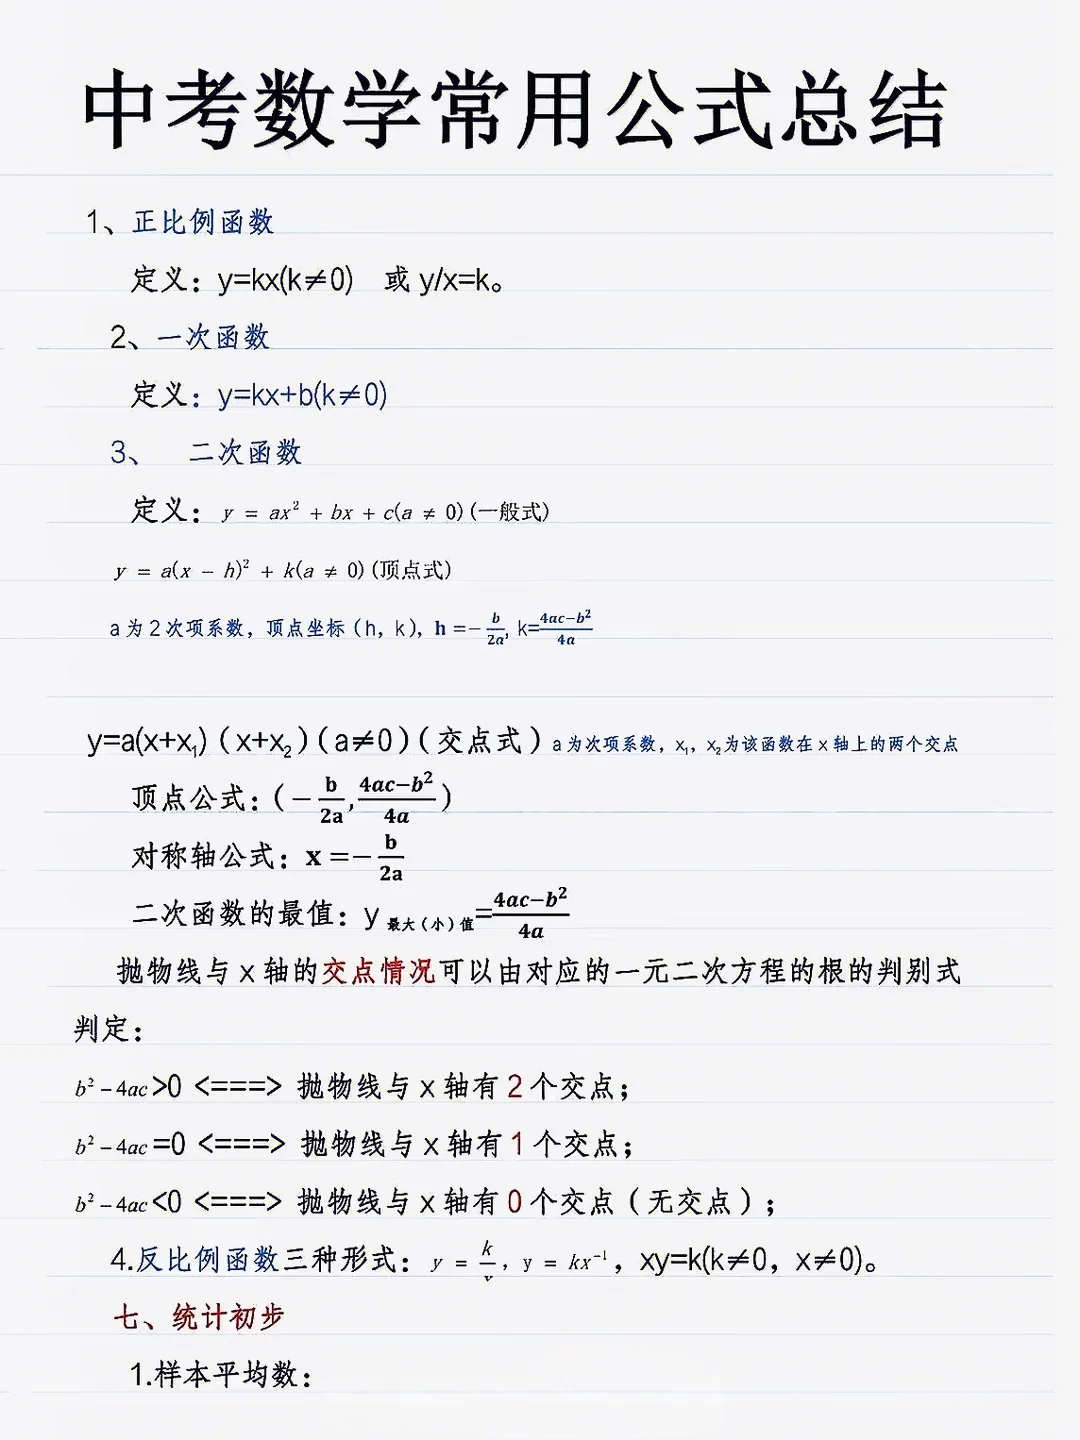 中考数学常用公式总结
1、正比例函数
定义：y=kx(k≠0) 或 y/x=k。
2、一次函数
定义：y=kx+b(k≠0)
3、 二次函数
定义：y = ax² + bx + c(a ≠ 0)(一般式)
y = a(x − h)² + k(a ≠ 0)(顶点式)
a 为 2 次项系数，顶点坐标（h，k），h =−b/2a, k=4ac−b²/4a
y=a(x+x₁)（x+x₂）(a≠0)（交点式）a 为次项系数，x₁，x₂为该函数在 x 轴上的两个交点
顶点公式：(−b/2a,4ac−b²/4a)
对称轴公式：x =−b/2a
二次函数的最值：y 最大（小）值=4ac−b²/4a
抛物线与 x 轴的交点情况可以由对应的一元二次方程的根的判别式
判定：
b²－4ac>0 <===> 抛物线与 x 轴有 2 个交点；
b²－4ac=0 <===> 抛物线与 x 轴有 1 个交点；
b²－4ac<0 <===> 抛物线与 x 轴有 0 个交点（无交点）；
4.反比例函数三种形式：y = k/x，y = kx⁻¹，xy=k(k≠0，x≠0)。
七、统计初步
1.样本平均数：